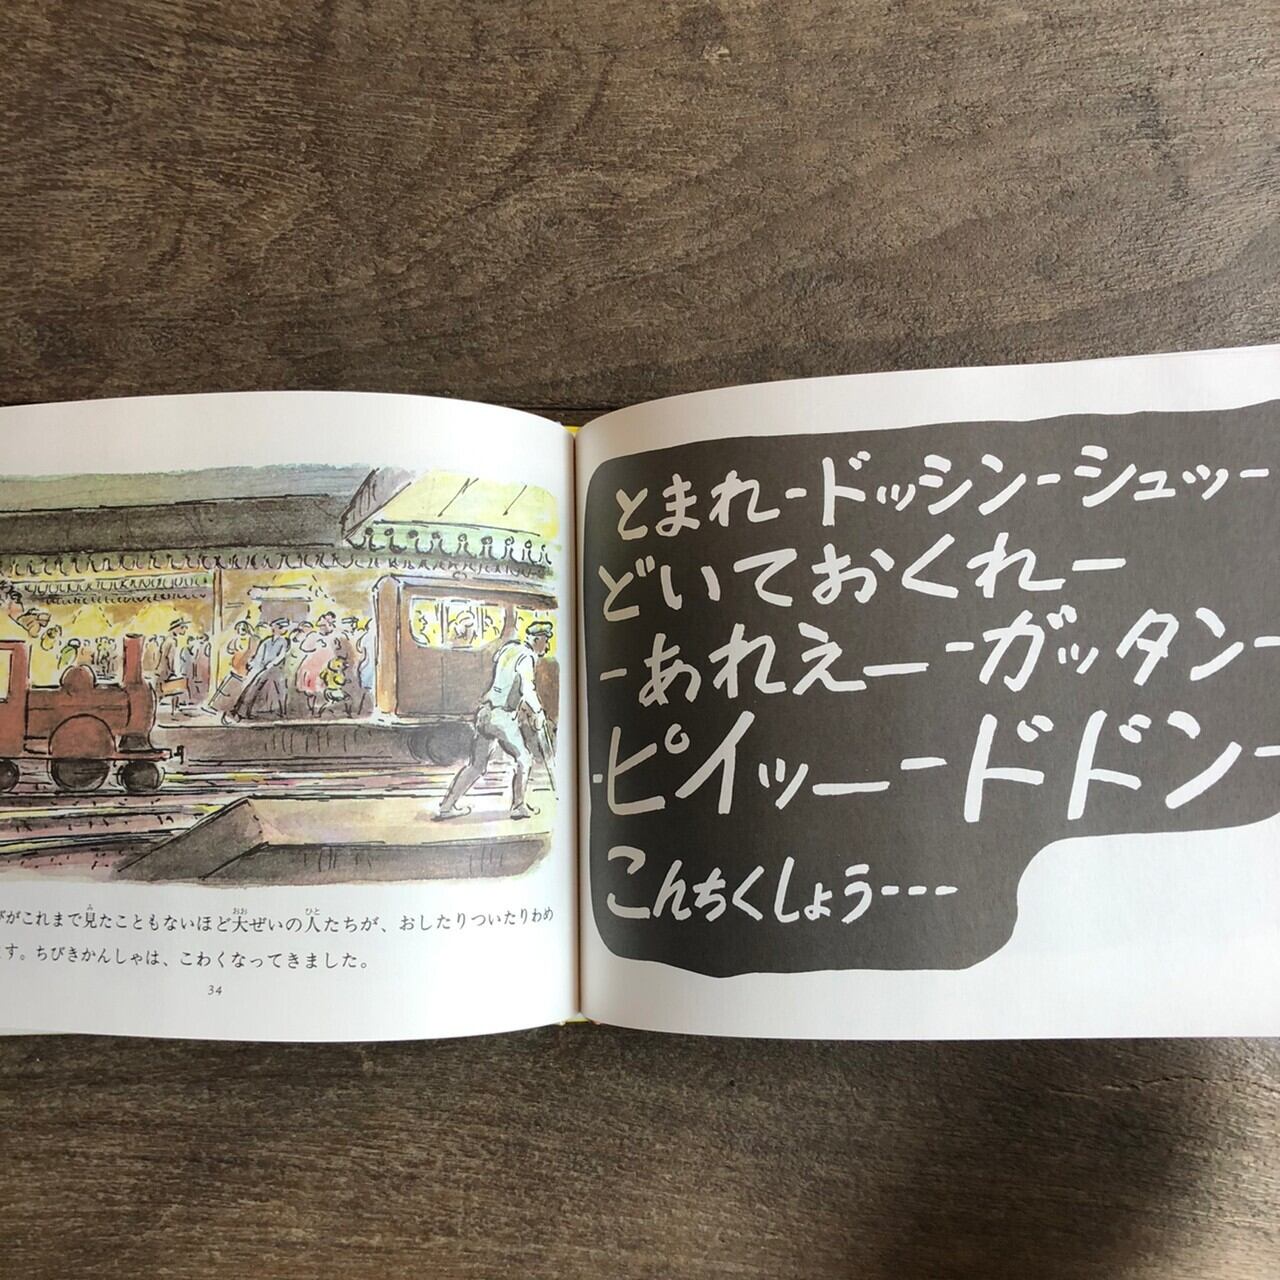 がこれまで見たこともないほど大ぜいの人たちが、おしたりついたりわめ
す。ちびきかんしゃは、こわくなってきました。
34
とまれードッシンーシュッー
どいておくれー
ーあれえー ーガッタンー
ピイッー ードドンー
こんちくしょう---